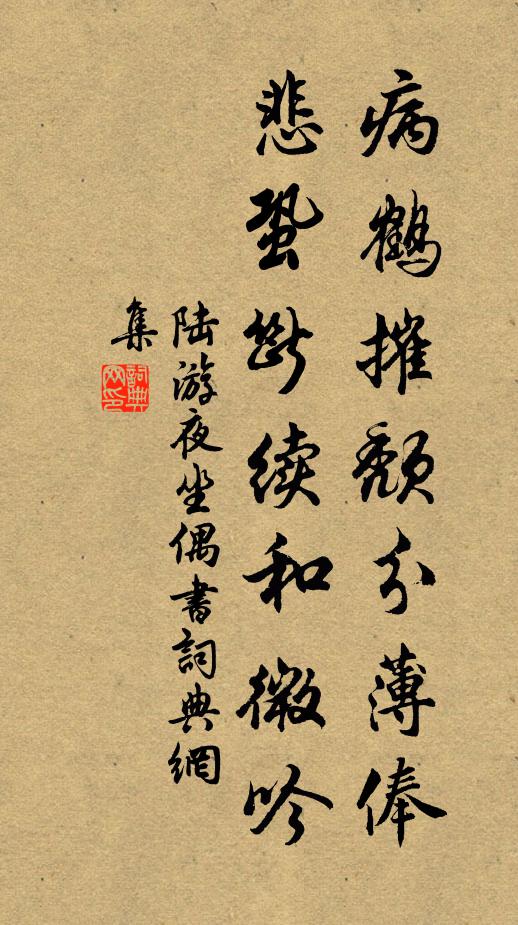 病鶴摧頹分薄俸
悲蛩斷续和微吟
陆游夜坐偶書詞典網
集
詞典
网印